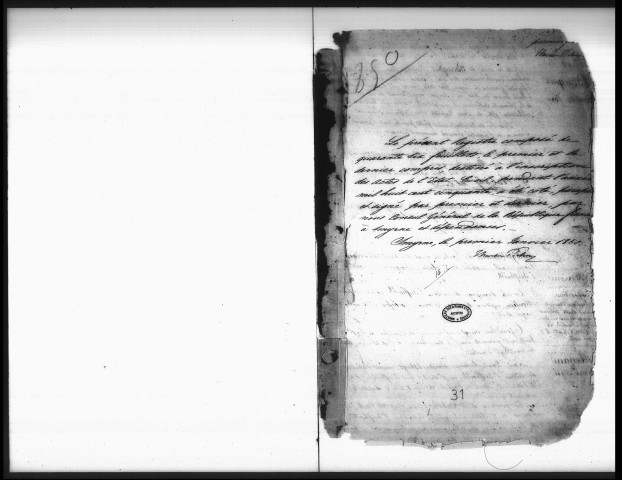 850
premier
Le présent registre composé de
quarante six feuillets, le premier et le
dernier compris, destiné à l'inscription
des actes de l'Etat-Civil, pendant l'année
mil huit cent cinquante a été coté, paraphé
et signé par premier et dernier par
nous Consul Général de la République
à Smyrne et dépendances.
Smyrne, le premier Janvier 1850.
ARCHIVES
31